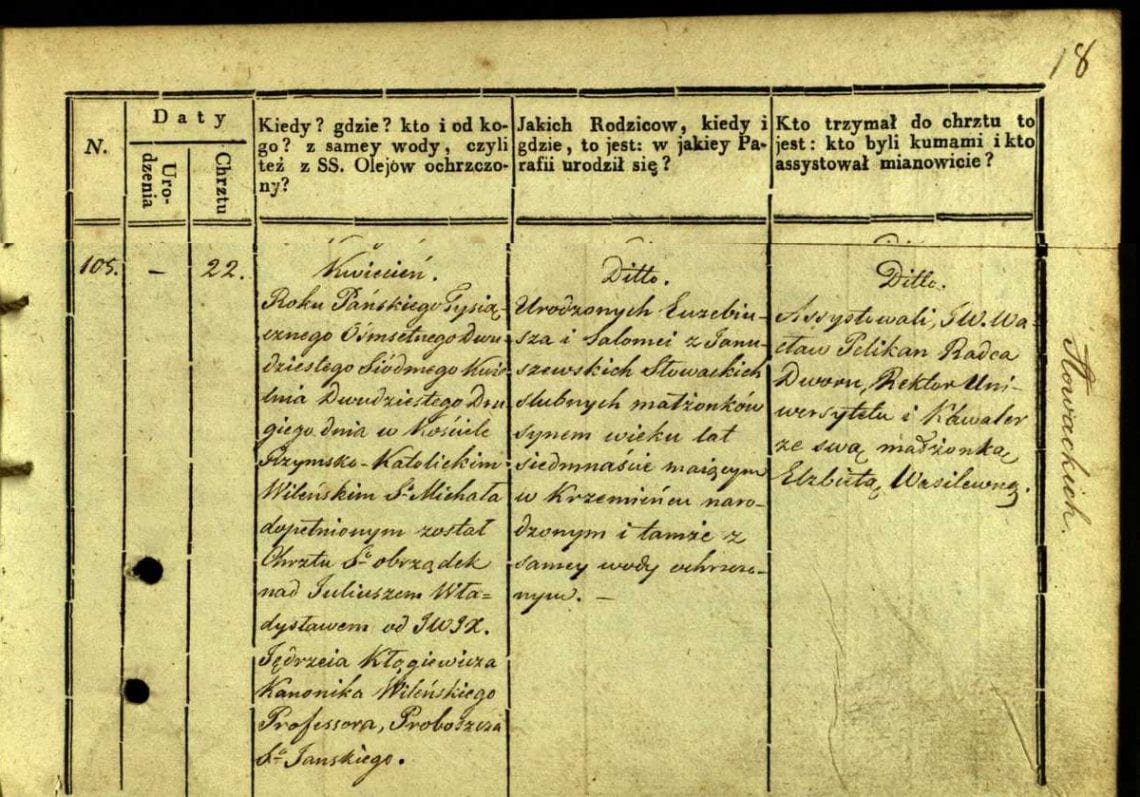 18
N.
Daty
Uro-
dzenia
Chrztu
Kiedy? gdzie? kto i od ko-
go? z samey wody, czyli
też z SS. Olejów ochrzczo-
ny?
Jakich Rodzicow, kiedy i
gdzie, to jest: w jakiey Pa-
rafii urodził się?
Kto trzymał do chrztu to
jest: kto byli kumami i kto
assystował mianowicie?
105.
—
22.
Kwiecień.
Roku Pańskiego Tysią
cznego Ośmsetnego Dwu
dziestego Siódmego Kwie
tnia Dwudziestego Dru
giego dnia w Kościele
Rzymsko-Katolickim
Wileńskim Sº Michała
dopełnionym został
Chrztu Sº obrządek
nad Juliuszem Wła=
dysławem od JWJX.
Jędrzeia Kłągiewicza
Kanonika Wileńskiego
Professora, Proboszcza
Sº Janskiego.
Ditto.
Urodzonych Euzebiu-
sza i Salomei z Janu-
szewskich Słowackich
ślubnych małżonków
synem wieku lat
siedmnaście maiącym
w Krzemieńcu naro-
dzonym i tamże z
samey wody ochrzczo-
nym. —
Ditto.
Assystowali, JW. Wa-
cław Pelikan Radca
Dworu, Rektor Uni-
wersytetu i Kawaler
ze swą małżonką
Elżbietą Wasilewną.
Słowackich.